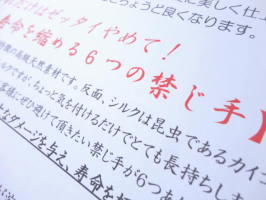 に美しく仕上
っと良くなります。
だけはゼッタイやめて！
寿命を縮める６つの禁じ手】
の高級天然素材です。反面、シルクは昆虫であるカイコ
ルクですが、ちょっと気を付けるだけでとても長持ちしま
客様にぜひ避けて頂きたい禁じ手が６つあ
なダメージを与え、寿命を